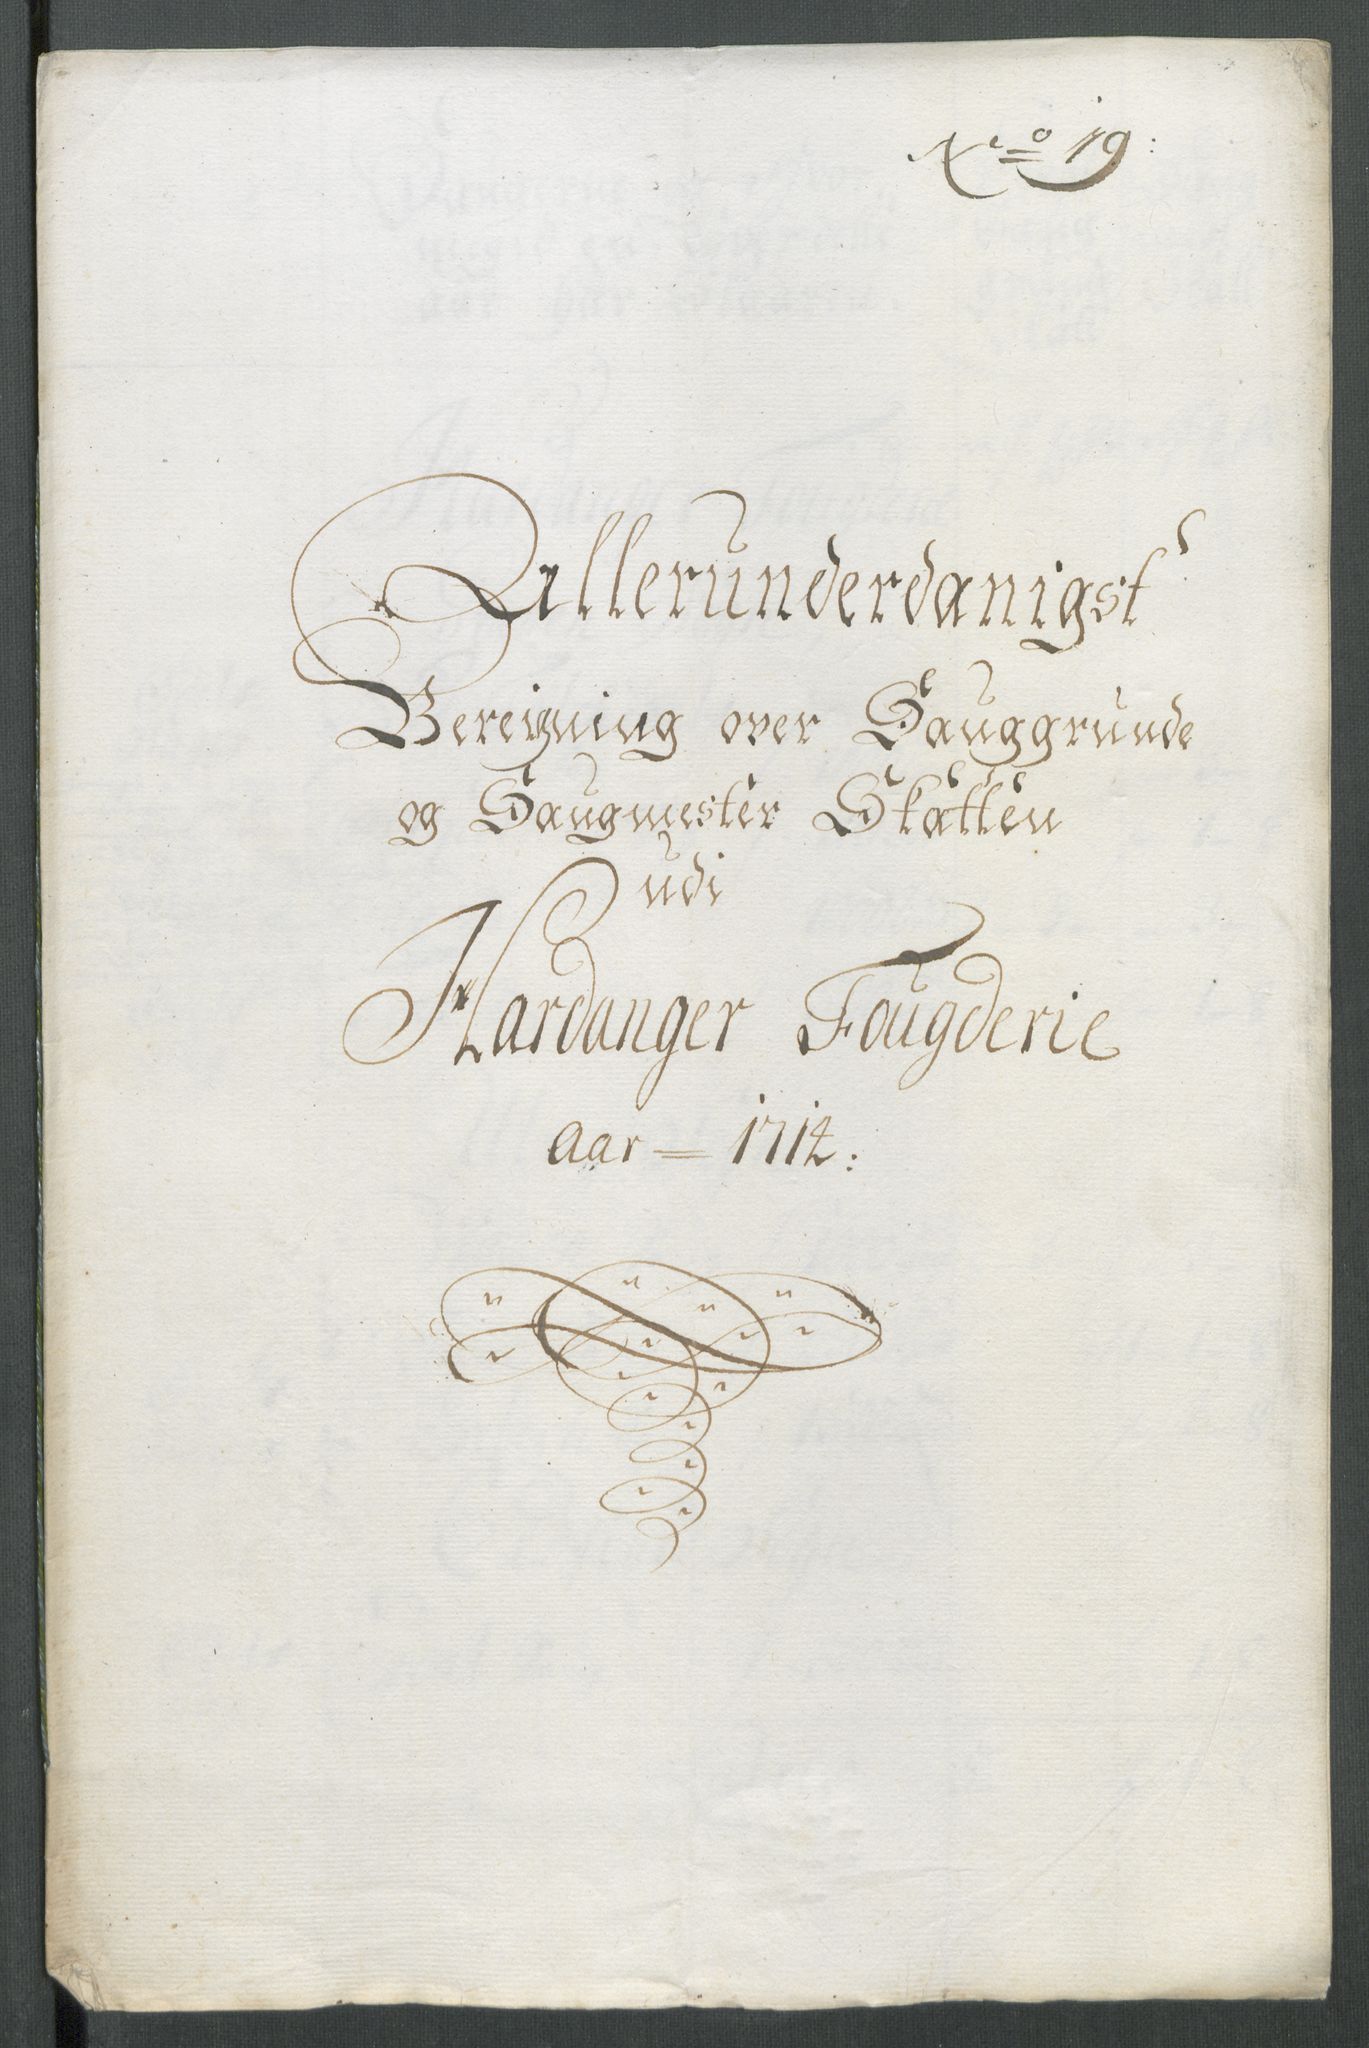 No 19:
Allerunderdanigst
Bereigning over Sauggrunde
og Saugmester Skatten
udi
Hardanger Fougderie
Aar = 1714: